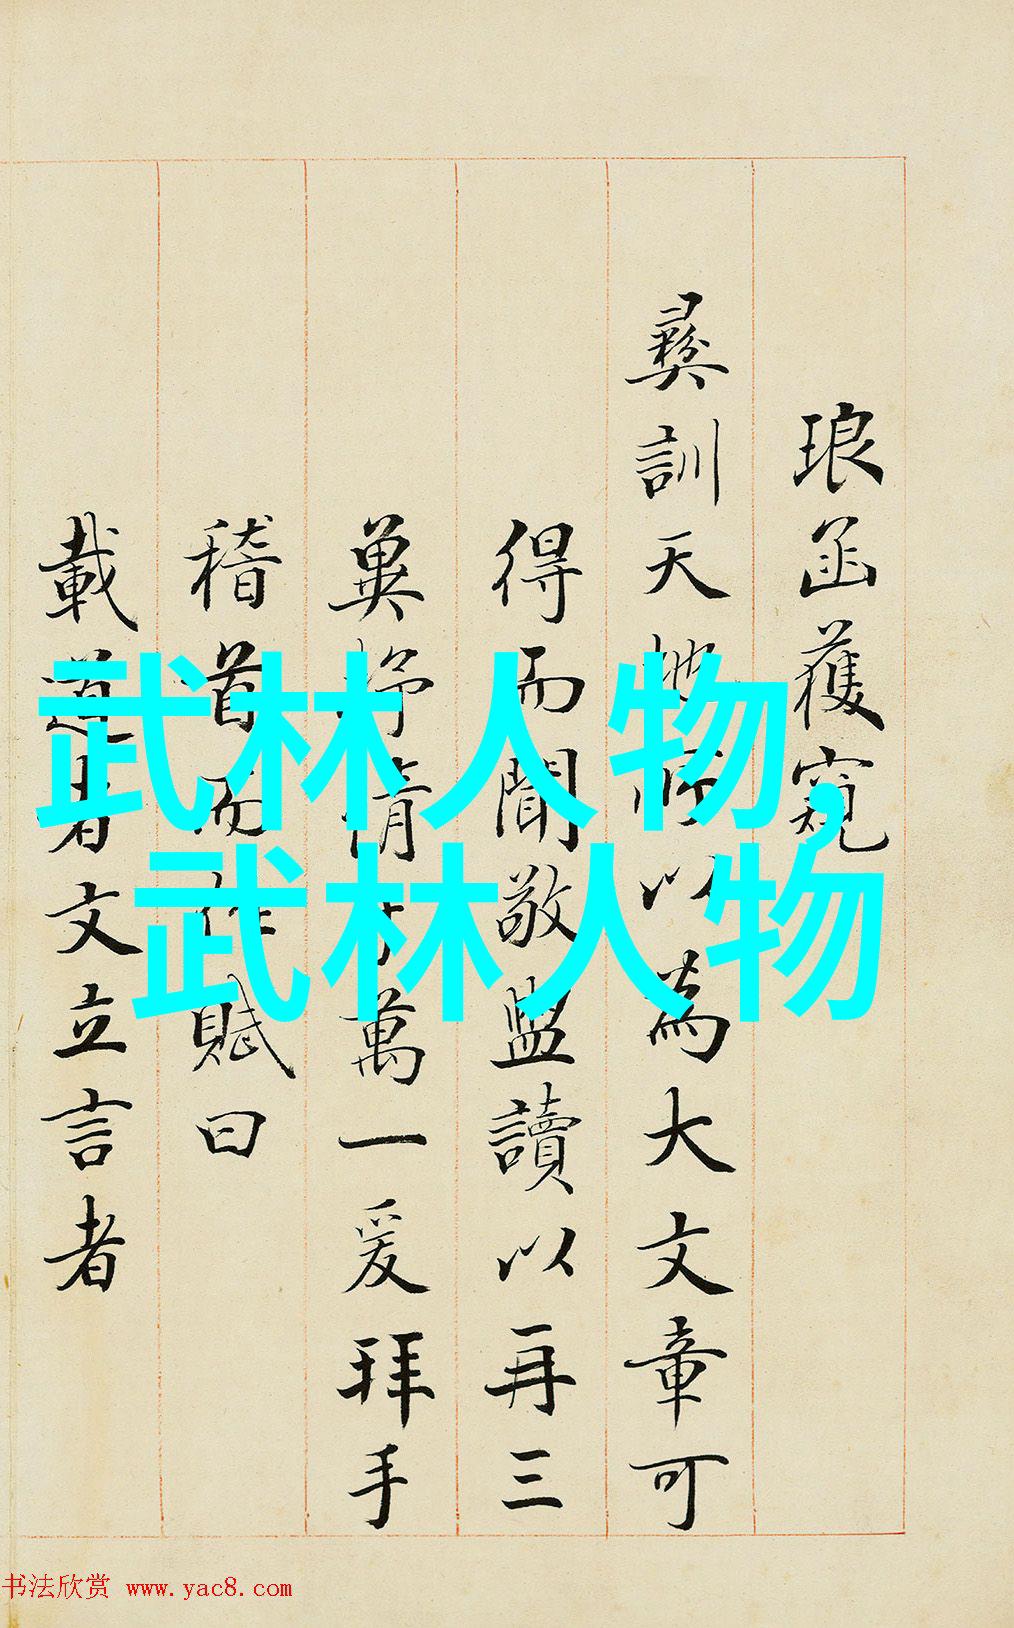 琅函獲窺
彝訓天地所以為大文章可
得而聞敬盥讀以再三
冀抒情於萬一爰拜手
稽首而作賦曰
載道者文立言者
武林人物,
武林人物
书法欣赏 www.yac8.com